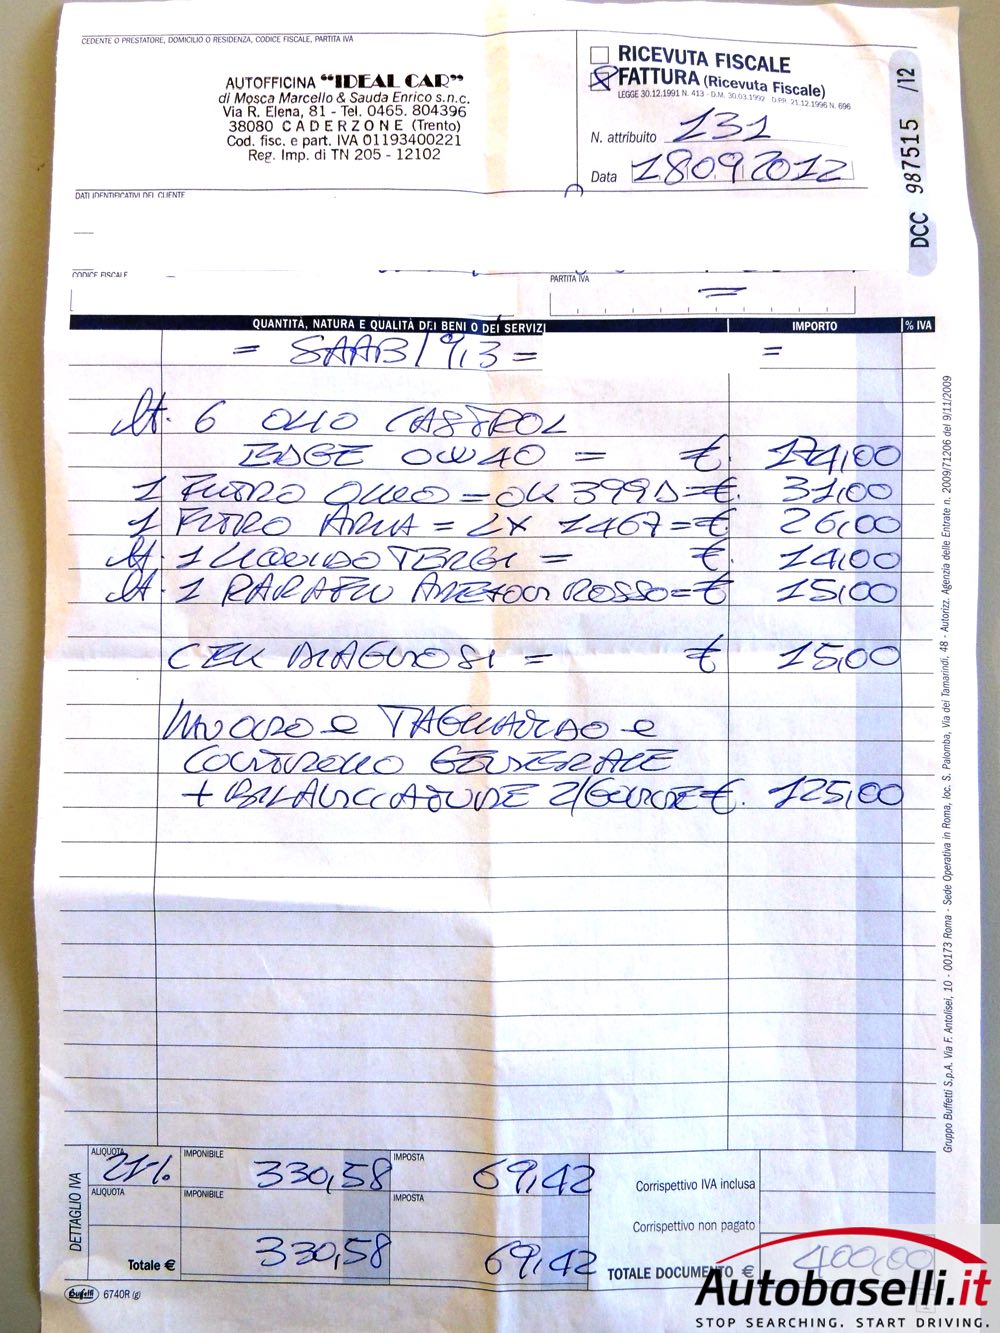 CEDENTE O PRESTATORE, DOMICILIO O RESIDENZA, CODICE FISCALE, PARTITA IVA
AUTOFFICINA "IDEAL CAR"
di Mosca Marcello & Sauda Enrico s.n.c.
Via R. Elena, 81 - Tel. 0465. 804396
38080 CADERZONE (Trento)
Cod. fisc. e part. IVA 01193400221
Reg. Imp. di TN 205 - 12102
RICEVUTA FISCALE
FATTURA (Ricevuta Fiscale)
LEGGE 30.12.1991 N. 413 - D.M. 30.03.1992 - D.P.R. 21.12.1996 N. 696
N. attribuito 131
Data 18092012
DCC 987515 /12
DATI IDENTIFICATIVI DEL CLIENTE
CODICE FISCALE
PARTITA IVA =
QUANTITÀ, NATURA E QUALITÀ DEI BENI O DEI SERVIZI IMPORTO % IVA
= SAAB/9,3 = =
lt. 6 OLIO CASTROL
EDGE 0W40 = €. 174,00
1 FILTRO OLIO = OK 399D = €. 31,00
1 FILTRO ARIA = LX 1467 = € 26,00
lt. 1 LIQUIDO TERGI = €. 14,00
lt. 1 PARAFLU ROSSO = € 15,00
CEK DIAGNOSI = € 15,00
MVODO e TAGLIANDO e
CONTROLLO GENERALE
+ BILANCIATURE 2/GOMME €. 125,00
DETTAGLIO IVA
ALIQUOTA 21% IMPONIBILE 330,58 IMPOSTA 69,42
ALIQUOTA IMPONIBILE IMPOSTA
Totale € 330,58 69,42
Corrispettivo IVA inclusa
Corrispettivo non pagato
TOTALE DOCUMENTO € 400,00
Buffetti 6740R (g)
Gruppo Buffetti S.p.A. Via F. Antolisei, 10 - 00173 Roma - Sede Operativa in Roma, loc. S. Palomba, Via dei Tamarindi, 48 - Autorizz. Agenzia delle Entrate n. 2009/71206 del 9/11/2009
Autobaselli.it
STOP SEARCHING. START DRIVING.